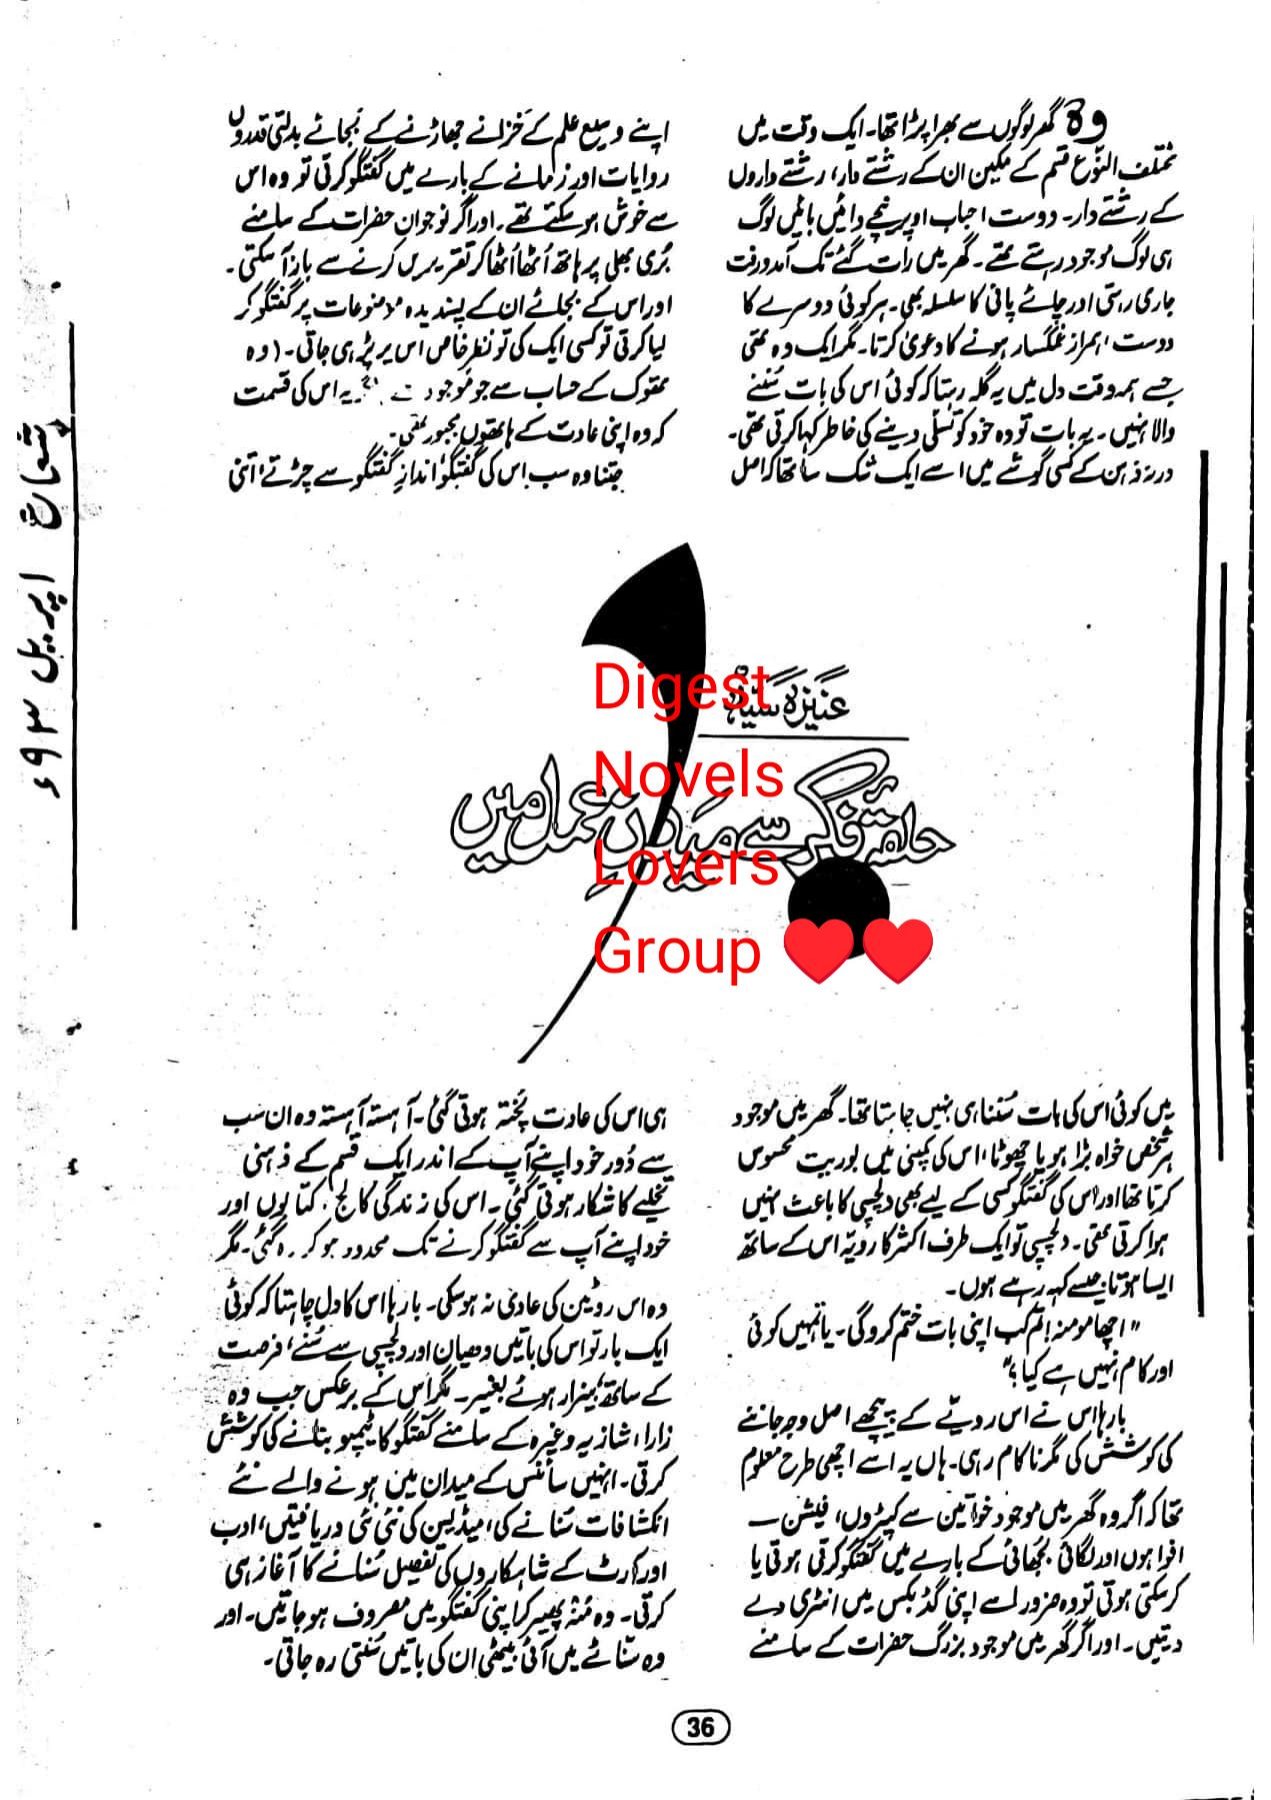 وہ گھر لوگوں سے بھرا پڑا تھا۔ ایک وقت میں
مختلف النوع قسم کے مکین ان کے رشتے دار، رشتے داروں
کے رشتے دار۔ دوست احباب اوپر نیچے دائیں بائیں لوگ
ہی لوگ موجود رہتے تھے۔ گھر میں رات گئے تک آمدورفت
جاری رہتی اور چائے پانی کا سلسلہ بھی۔ ہر کوئی دوسرے کا
دوست، ہمراز غمگسار ہونے کا دعویٰ کرتا۔ مگر ایک وہ تھی
جسے ہمہ وقت دل میں یہ گلہ رہتا کہ کوئی اس کی بات سُننے
والا نہیں۔ یہ بات تو وہ خود کو تسلّی دینے کی خاطر کہا کرتی تھی۔
ورنہ ذہن کے کسی گوشے میں اسے ایک شک سا تھا کہ اصل
میں کوئی اس کی بات سُننا ہی نہیں چاہتا تھا۔ گھر میں موجود
ہر شخص خواہ بڑا ہو یا چھوٹا، اس کی کمپنی میں بوریت محسوس
کرتا تھا اور اس کی گفتگو کسی کے لیے بھی دلچسپی کا باعث نہیں
ہوا کرتی تھی۔ دلچسپی تو ایک طرف اکثر کا رویّہ اس کے ساتھ
ایسا ہوتا جیسے کہہ رہے ہوں۔
"اچھا مومنہ! تم کب اپنی بات ختم کرو گی۔ یا تمہیں کوئی
اور کام نہیں ہے کیا؟"
بارہا اس نے اس رویّے کے پیچھے اصل وجہ جاننے
کی کوشش کی مگر ناکام رہی۔ ہاں یہ اسے اچھی طرح معلوم
تھا کہ اگر وہ گھر میں موجود خواتین سے کپڑوں، فیشن
افواہوں اور لگائی بجھائی کے بارے میں گفتگو کرتی ہوتی یا
کر سکتی ہوتی تو وہ ضرور اسے اپنی گڈ بکس میں انٹری دے
دیتیں۔ اور اگر گھر میں موجود بزرگ حضرات کے سامنے
اپنے وسیع علم کے خزانے جھاڑنے کے بجائے بدلتی قدروں
روایات اور زمانے کے بارے میں گفتگو کرتی تو وہ اس
سے خوش ہو سکتے تھے۔ اور اگر نوجوان حضرات کے سامنے
بُری بھلی پر ہاتھ اُٹھا اُٹھا کر تقریریں کرنے سے باز آ سکتی۔
اور اس کے بجائے ان کے پسندیدہ موضوعات پر گفتگو کر
لیا کرتی تو کسی ایک کی تو نظرِ خاص اس پر پڑ ہی جاتی۔ (وہ
تھوک کے حساب سے جو موجود یہ اس کی قسمت
کہ وہ اپنی عادت کے ہاتھوں مجبور تھی۔
جتنا وہ سب اس کی گفتگو، اندازِ گفتگو سے چڑتے، اتنی
ہی اس کی عادت پُختہ ہوتی گئی۔ آہستہ آہستہ وہ ان سب
سے دُور خود اپنے آپ کے اندر ایک قسم کے ذہنی
تخلیے کا شکار ہوتی گئی۔ اس کی زندگی کالج، کتابوں اور
خود اپنے آپ سے گفتگو کرنے تک محدود ہو کر رہ گئی۔ مگر
وہ اس روٹین کی عادی نہ ہو سکی۔ بارہا اس کا دل چاہتا کہ کوئی
ایک بار تو اس کی باتیں دھیان اور دلچسپی سے سُنے، فرصت
کے ساتھ، بیزار ہوئے بغیر۔ مگر اس کے برعکس جب وہ
زارا، شازیہ وغیرہ کے سامنے گفتگو کا ٹیمپو بنانے کی کوشش
کرتی۔ انہیں سائنس کے میدان میں ہونے والے نئے
انکشافات سُنانے کی، میڈیسن کی نئی نئی دریافتیں، ادب
اور آرٹ کے شاہکاروں کی تفصیل سُنانے کا آغاز ہی
کرتی۔ وہ مُنہ پھیر کر اپنی گفتگو میں مصروف ہو جاتیں۔ اور
وہ سنّاٹے میں آئی بیٹھی ان کی باتیں سُنتی رہ جاتی۔
عنیزہ سیّد
حلقۂ فکر سے میدانِ عمل میں
Digest
Novels
Lovers
Group ❤️❤️
شعاع اپریل ۹۳ء
36